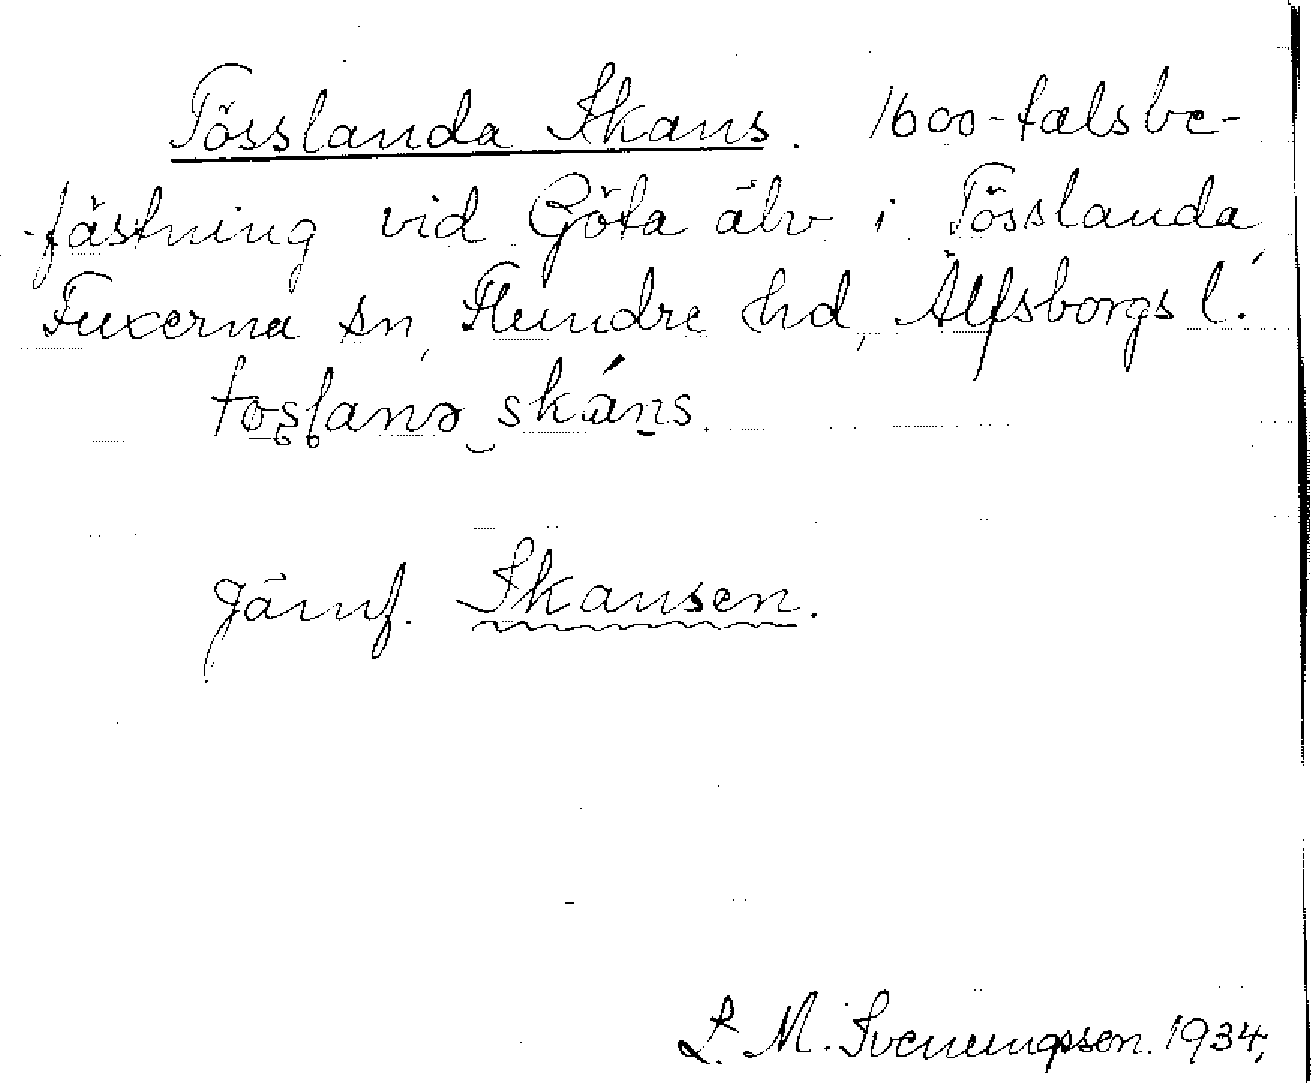 Tösslanda Skans. 1600-talsbe-
fästning vid Göta älv i Tösslanda,
Fuxerna sn, Flundre hd, Älfsborgs l.
toslanə skáns.
Jämf. Skansen.
L. M. Svenungsson. 1934.